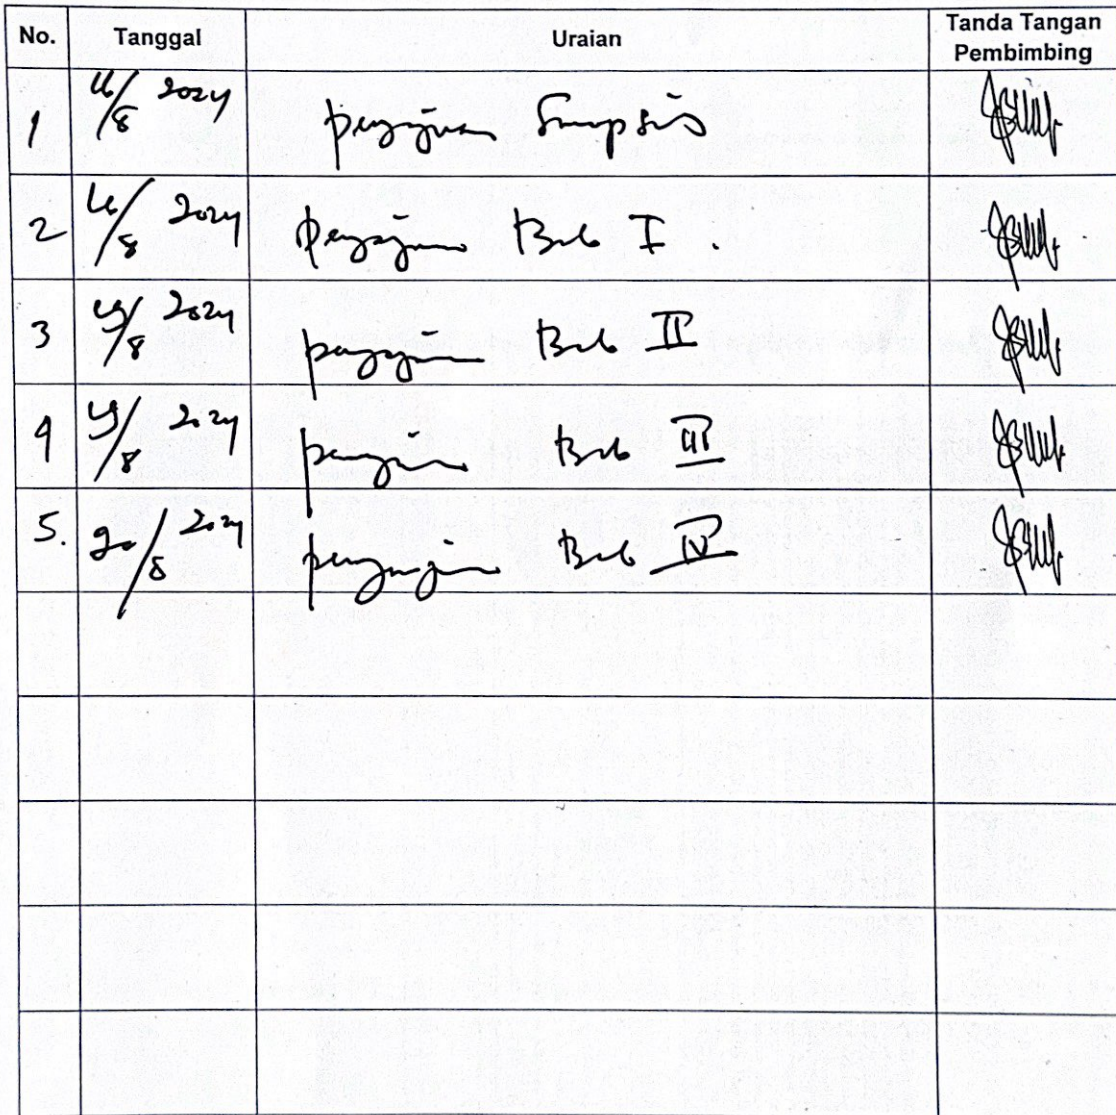 No. Tanggal Uraian Tanda Tangan Pembimbing
1 /8 2024 pengajuan
2 /8 2024 pengajuan Bab I
3 /8 2024 pengajuan Bab II
4 /8 2024 pengajuan Bab III
5. 20/8 2024 pengajuan Bab IV